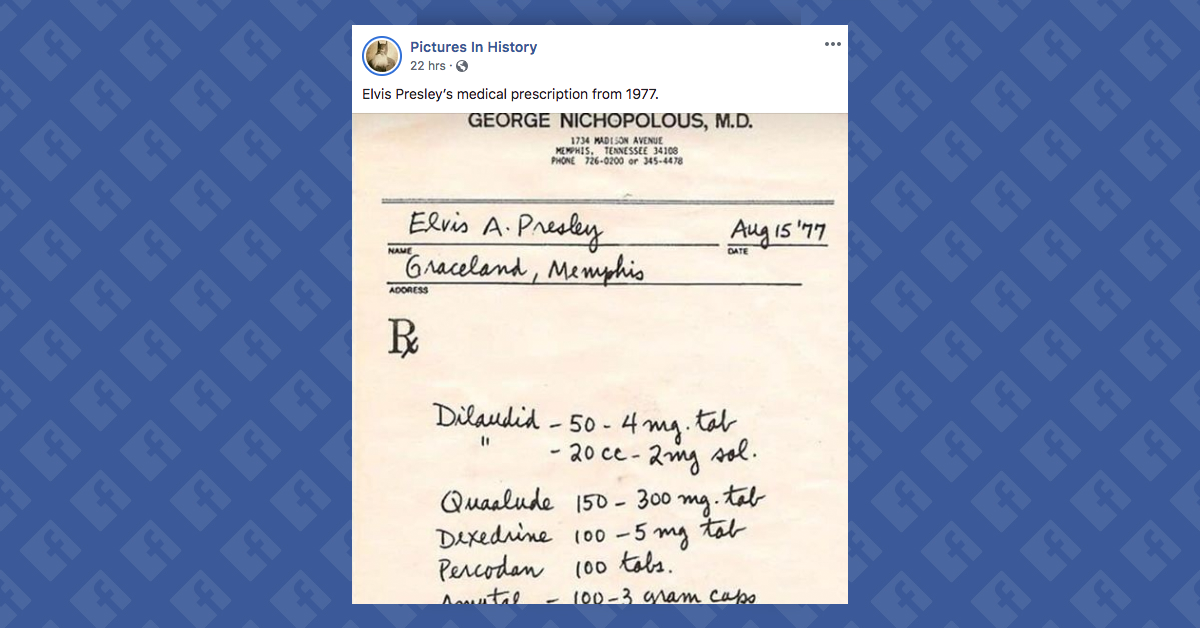 Pictures In History
22 hrs ·
Elvis Presley's medical prescription from 1977.
GEORGE NICHOPOLOUS, M.D.
1734 MADISON AVENUE
MEMPHIS, TENNESSEE 34108
PHONE 726-0200 or 345-4478
Elvis A. Presley Aug 15 '77
NAME DATE
Graceland, Memphis
ADDRESS
Rx
Dilaudid - 50 - 4 mg. tab
" - 20 cc - 2mg sol.
Quaalude 150 - 300 mg. tab
Dexedrine 100 - 5 mg tab
Percodan 100 tabs.
Amytal - 100 - 3 gram caps